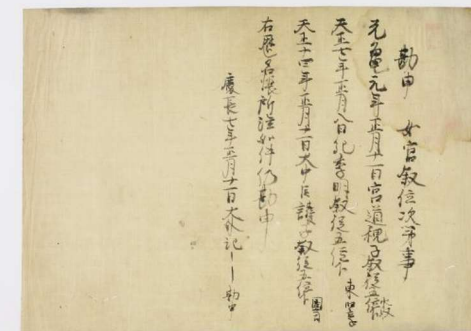 勘申 女官叙位次第事
元亀元年正月十一日宮道親子叙従五位
天正七年正月八日紀季明叙従五位下
天正十四年正月十一日大中臣護子叙従五位下
右歴名帳所注如件仍勘申
慶長七年正月十一日大外記 勘申